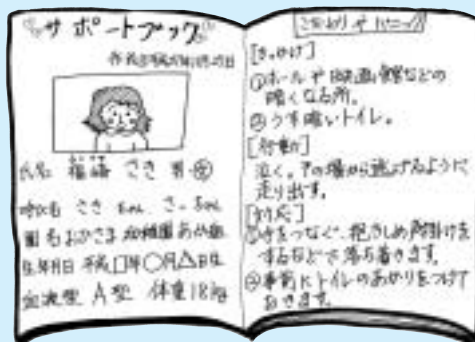 サポートブック
氏名 福 さき 男・女
呼び名 さき ちゃん、さっちゃん
園名 おひさま幼稚園
生年月日 平成□年○月△日生
血液型 A型 体重18kg
こだわり や パニック
[きっかけ]
①ホールや映画館などの
暗くなる所。
②うす暗いトイレ。
[行動]
泣く。その場から逃げるように
走り出す。
[対応]
①手をつなぐ、抱きしめ声掛けを
するなどで落ち着きます。
②事前にトイレのあかりをつけて
おきます。